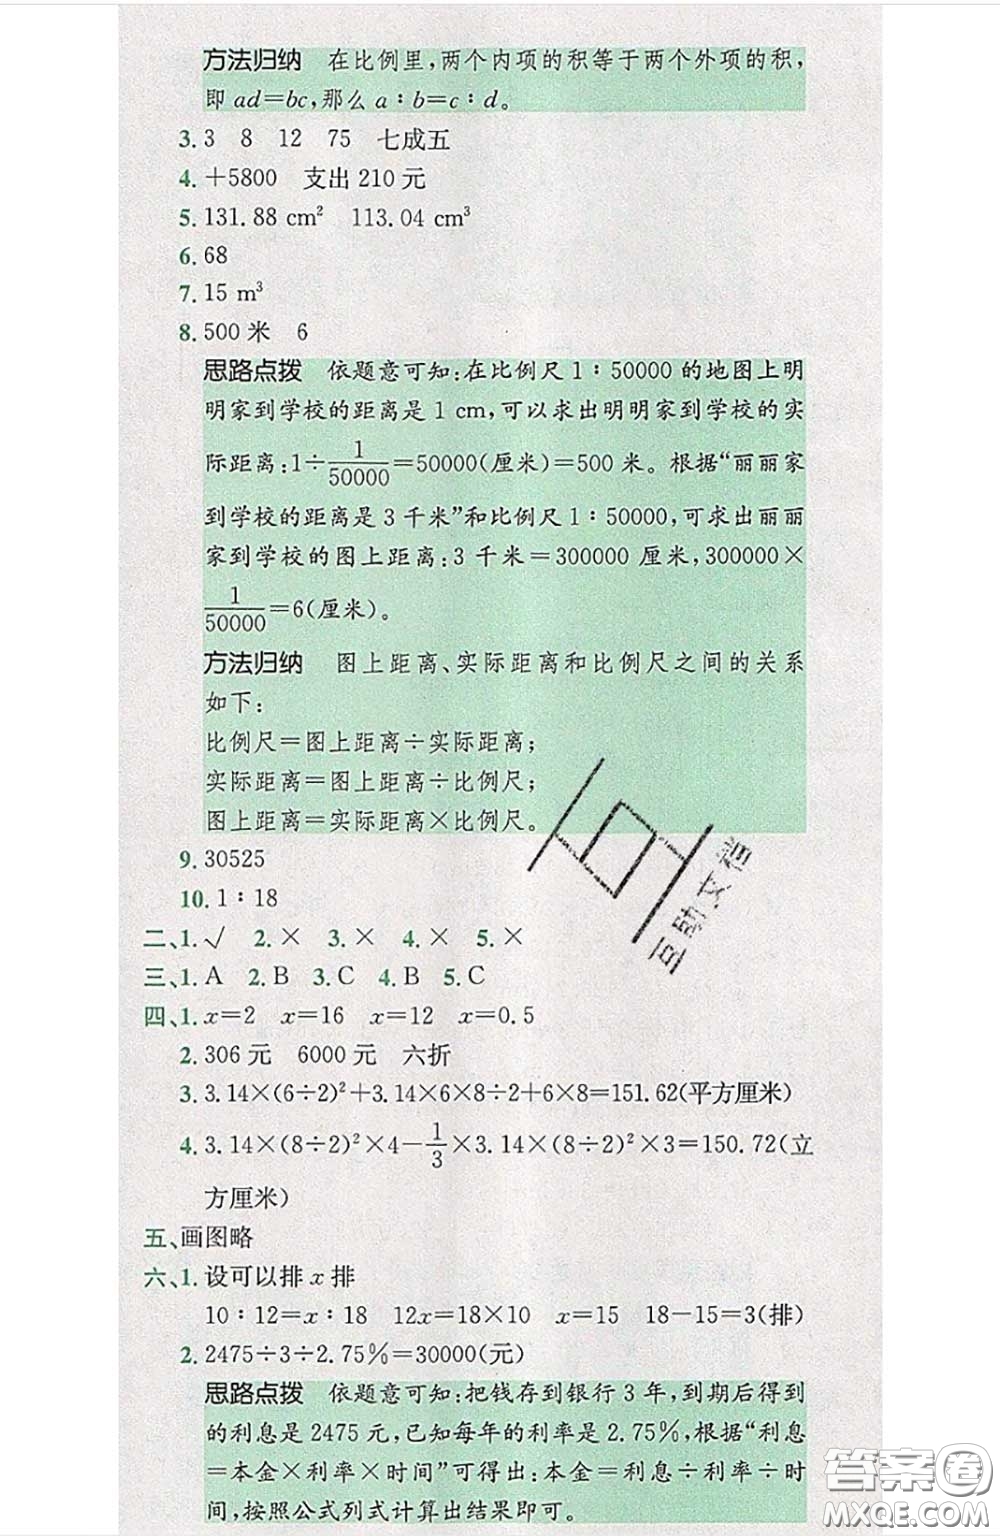 方法归纳 在比例里,两个内项的积等于两个外项的积,
即 ad=bc,那么 a∶b=c∶d。
3. 3 8 12 75 七成五
4. +5800 支出210元
5. 131.88 cm² 113.04 cm³
6. 68
7. 15 m³
8. 500米 6
思路点拨 依题意可知:在比例尺1∶50000的地图上明
明家到学校的距离是1 cm,可以求出明明家到学校的实
际距离:1÷1/50000=50000(厘米)=500米。根据“丽丽家
到学校的距离是3千米”和比例尺1∶50000,可求出丽丽
家到学校的图上距离:3千米=300000厘米,300000×
1/50000=6(厘米)。
方法归纳 图上距离、实际距离和比例尺之间的关系
如下:
比例尺=图上距离÷实际距离;
实际距离=图上距离÷比例尺;
图上距离=实际距离×比例尺。
9. 30525
10. 1∶18
二、1. √ 2. × 3. × 4. × 5. ×
三、1. A 2. B 3. C 4. B 5. C
四、1. x=2 x=16 x=12 x=0.5
2. 306元 6000元 六折
3. 3.14×(6÷2)²+3.14×6×8÷2+6×8=151.62(平方厘米)
4. 3.14×(8÷2)²×4-1/3×3.14×(8÷2)²×3=150.72(立
方厘米)
五、画图略
六、1. 设可以排x排
10∶12=x∶18 12x=18×10 x=15 18-15=3(排)
2. 2475÷3÷2.75%=30000(元)
思路点拨 依题意可知:把钱存到银行3年,到期后得到
的利息是2475元,已知每年的利率是2.75%,根据“利息
=本金×利率×时间”可得出:本金=利息÷利率÷时
间,按照公式列式计算出结果即可。
答案圈
MXQE.COM